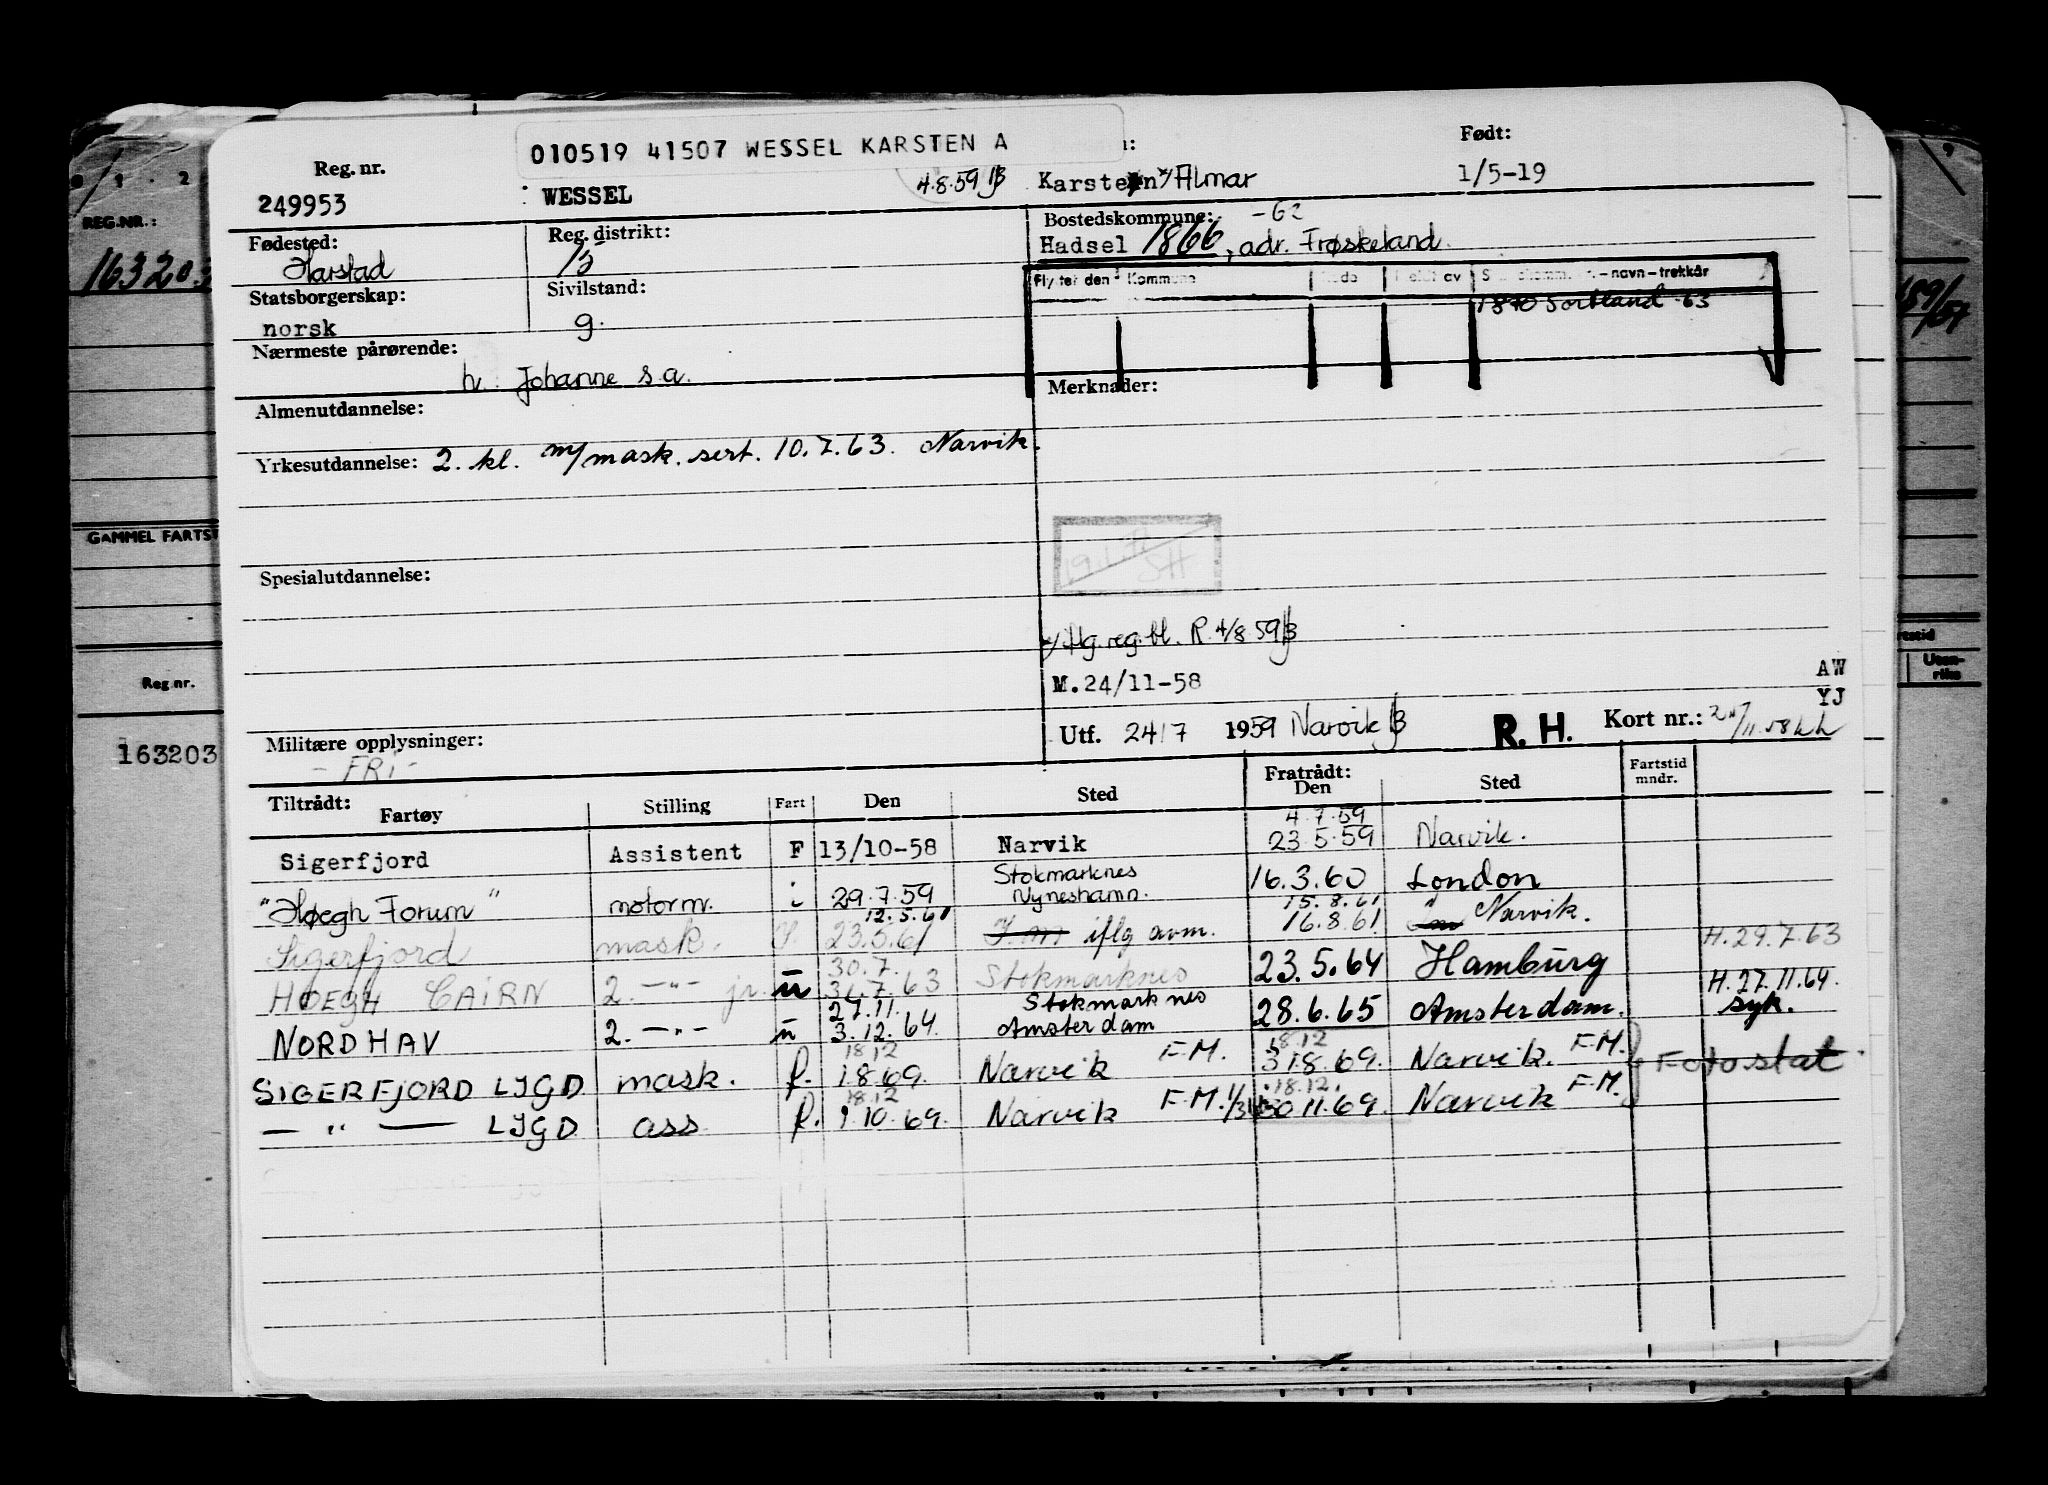 010519 41507 WESSEL KARSTEN A
Født:
Reg. nr.
249953
WESSEL
4.8.59
Karsten Almar
1/5-19
Fødested:
Harstad
Reg. distrikt:
15
Bostedskommune: -62
Hadsel 1866, adr. Frøskeland.
Statsborgerskap:
norsk
Sivilstand:
g.
Kommune
-navn-trekkår
1870 Sortland 63
Nærmeste pårørende:
h. Johanne s.a.
Merknader:
Almenutdannelse:
Yrkesutdannelse: 2. kl. m/mask. sert. 10.7.63. Narvik.
Spesialutdannelse:
iflg. reg. bl. R. 4/8 59
M.24/11-58
AW
YJ
Utf. 24/7 1959 Narvik
R. H.
Kort nr.:
Militære opplysninger:
- FRI -
Tiltrådt:
Fartøy Stilling Fart Den Sted Fratrådt: Den Sted Fartstid mndr.
4.7.59
Sigerfjord Assistent F 13/10-58 Narvik 23.5.59 Narvik.
Stokmarknes
"Høegh Forum" motorm. i 29.7.59 Nyneshamn. 16.3.60 London
12.5.61 15.8.61
Sigerfjord mask. 23.5.61 iflg avm. 16.8.61 Narvik.
H. 29.7.63
30.7.
HOEGH CAIRN 2. -"- jr. u 7.63 Stokmarknes 23.5.64 Hamburg
27.11. Stokmarknes H. 27.11.64.
NORDHAV 2. -"- u 3.12.64. Amsterdam 28.6.65 Amsterdam. syk.
18.12 18.12
SIGERFJORD LJGD mask. f. 1.8.69. Narvik F.M. 31.8.69. Narvik. F.M. Fotostat
18.12 18.12.
— " — LJGD ass f. 1.10.69. Narvik F.M. 30.11.69. Narvik F.M.
REG.NR.:
163203
GAMMEL FARTST
Reg nr.
163203
Uten-
riks